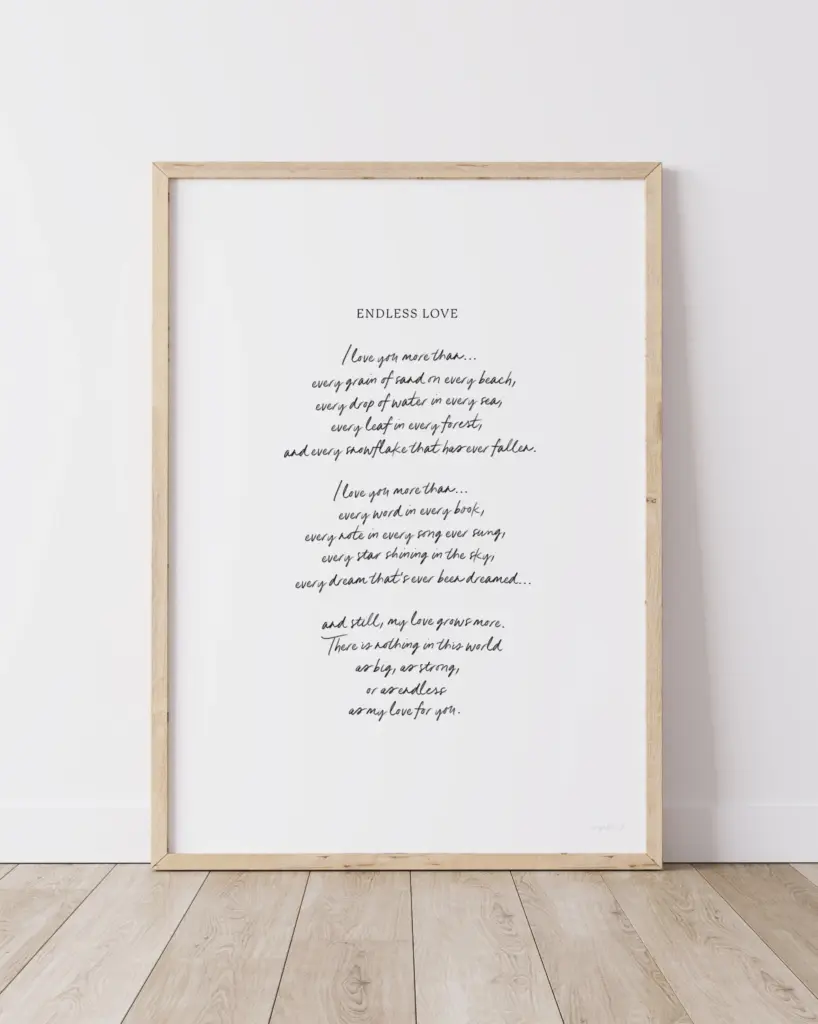 ENDLESS LOVE
I love you more than...
every grain of sand on every beach,
every drop of water in every sea,
every leaf in every forest,
and every snowflake that has ever fallen.
I love you more than...
every word in every book,
every note in every song ever sung,
every star shining in the sky,
every dream that's ever been dreamed...
and still, my love grows more.
There is nothing in this world
as big, as strong,
or as endless
as my love for you.